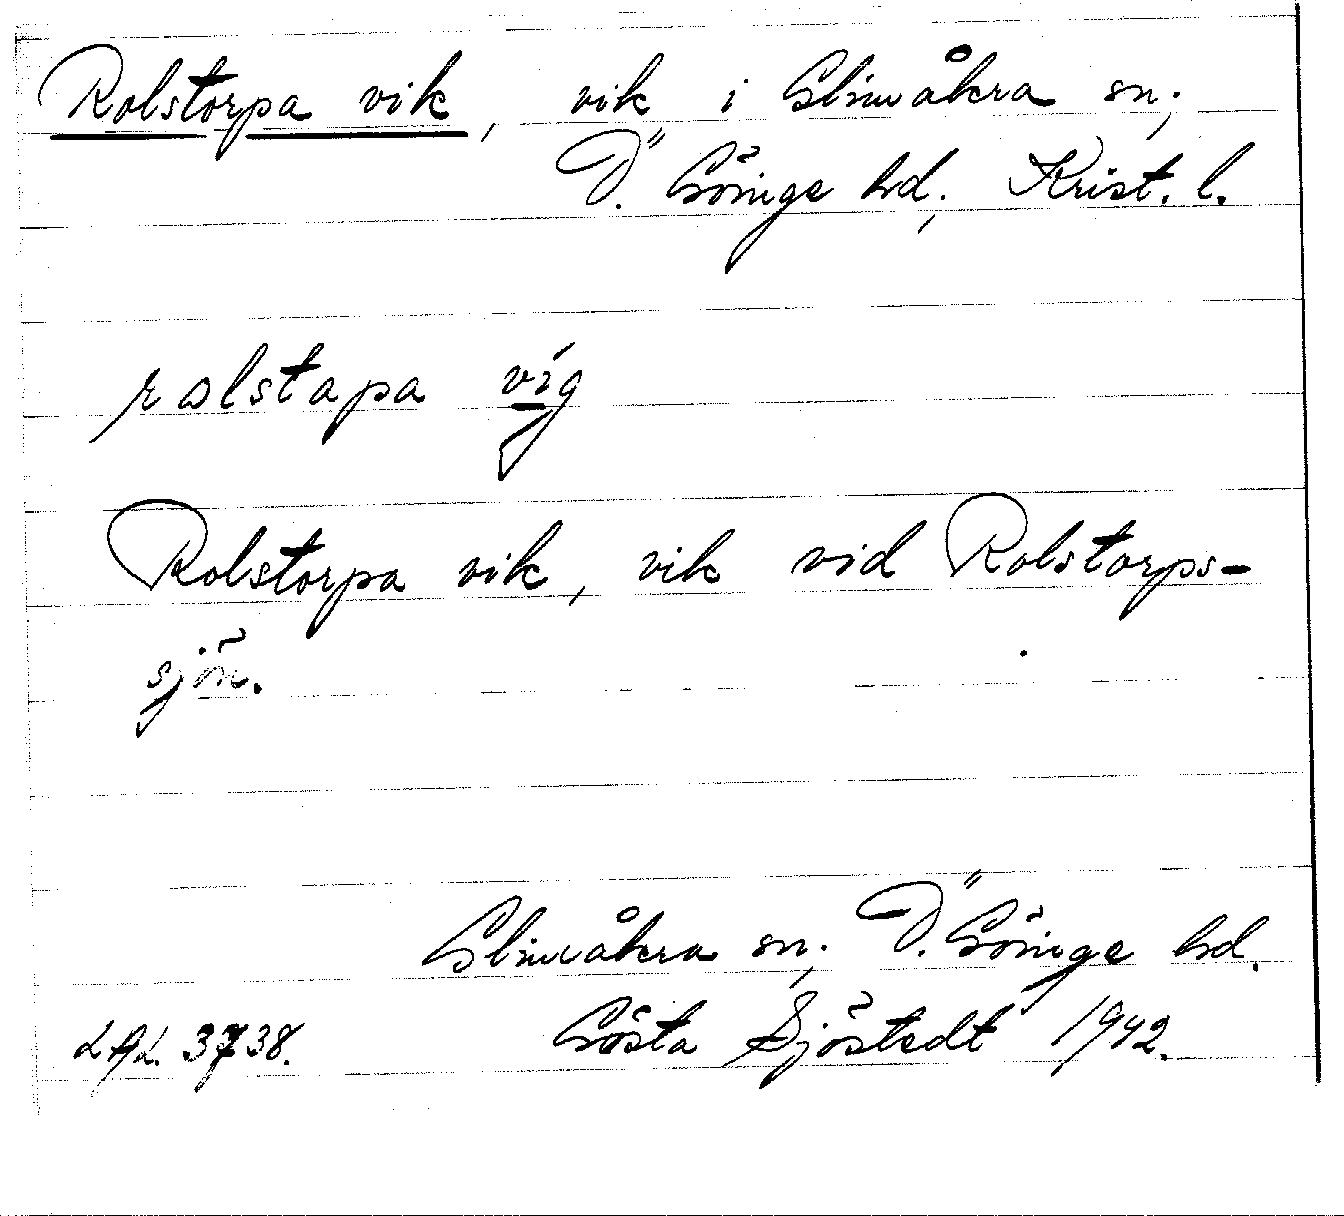 Rolstorpa vik, vik i Glimåkra sn;
Ö. Göinge hd; Krist. l.
rolstapa vig
Rolstorpa vik, vik vid Rolstorps-
sjön.
Glimåkra sn; Ö. Göinge hd.
LAL. 3738. Gösta Sjöstedt 1942.